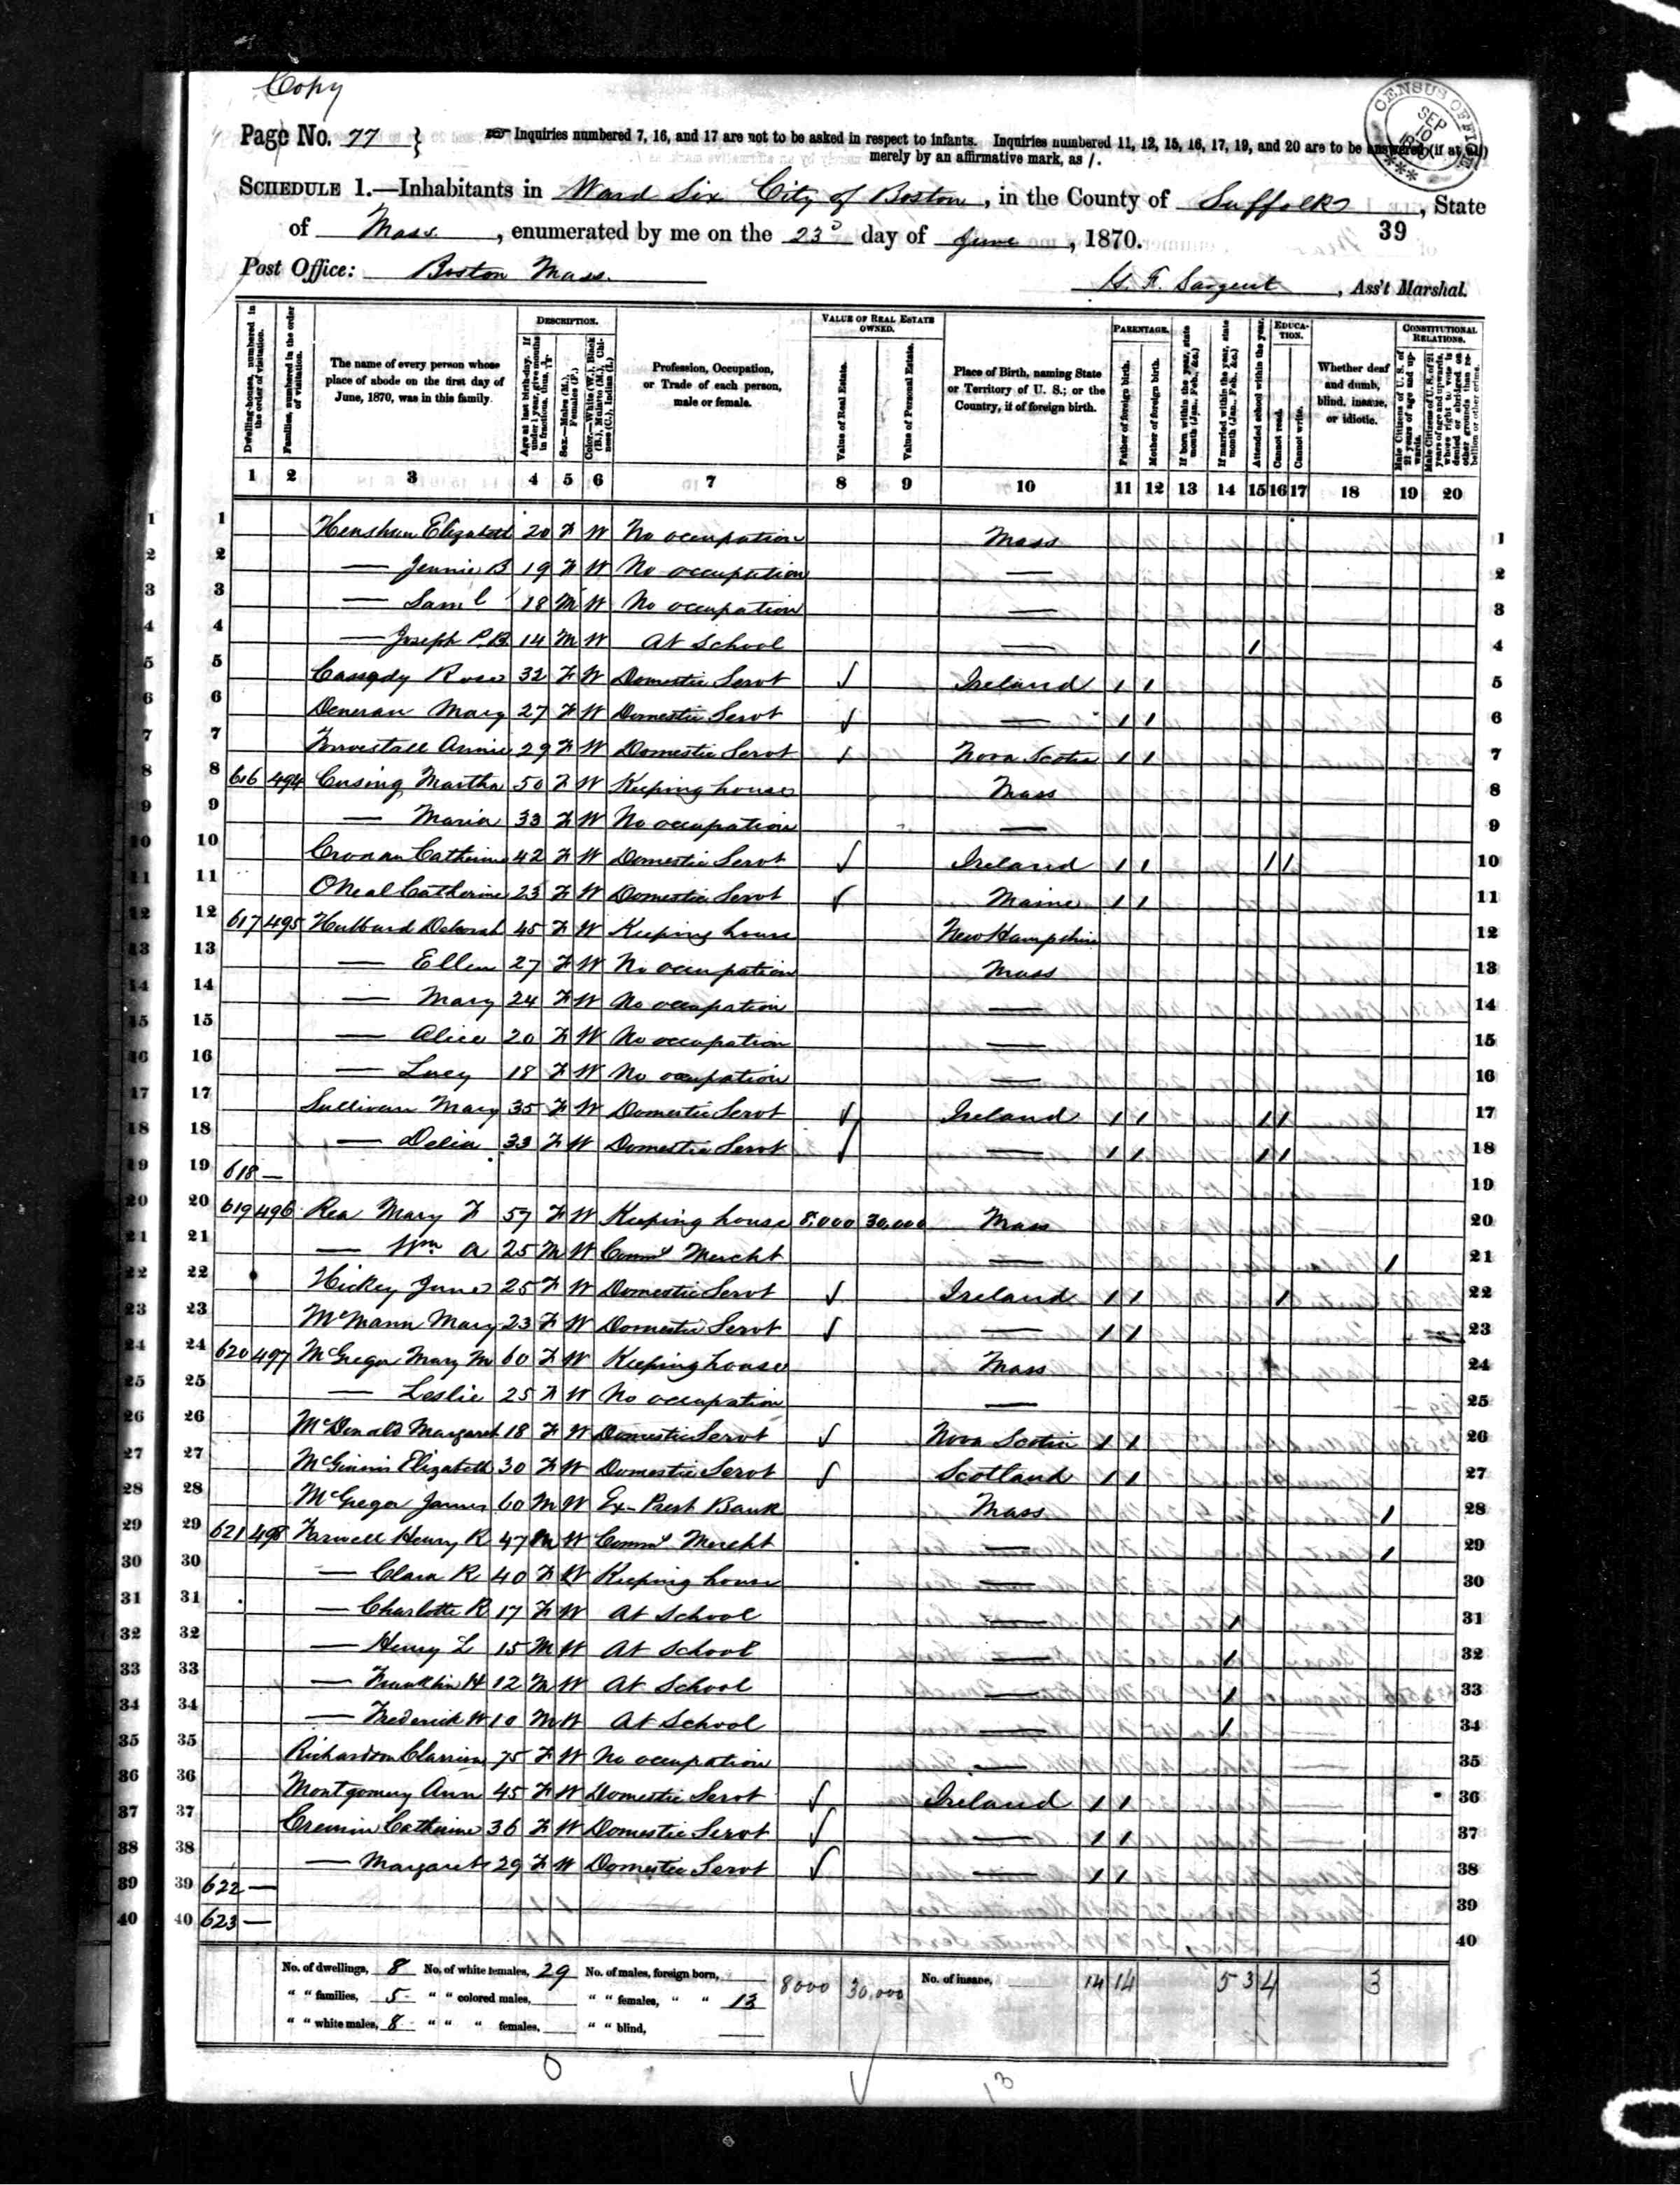 Copy
Page No. 77 } Inquiries numbered 7, 16, and 17 are not to be asked in respect to infants. Inquiries numbered 11, 12, 15, 16, 17, 19, and 20 are to be answered (if at all)
merely by an affirmative mark, as /.
CENSUS OFFICE SEP 10
SCHEDULE 1.—Inhabitants in Ward Six City of Boston, in the County of Suffolk, State
of Mass, enumerated by me on the 23d day of June, 1870.
39
Post Office: Boston Mass.
H. F. Sargent, Ass't Marshal.
Dwelling-houses, numbered in the order of visitation.
Families, numbered in the order of visitation.
The name of every person whose place of abode on the first day of June, 1870, was in this family.
DESCRIPTION.
Age at last birth-day. If under 1 year, give months in fractions, thus,
Sex.—Males (M.), Females (F.)
Color.—White (W.), Black (B.), Mulatto (M.), Chinese (C.), Indian (I.)
Profession, Occupation, or Trade of each person, male or female.
VALUE OF REAL ESTATE OWNED.
Value of Real Estate.
Value of Personal Estate.
Place of Birth, naming State or Territory of U. S.; or the Country, if of foreign birth.
PARENTAGE.
Father of foreign birth.
Mother of foreign birth.
If born within the year, state month (Jan., Feb., &c.)
If married within the year, state month (Jan., Feb., &c.)
Attended school within the year.
EDUCATION.
Cannot read.
Cannot write.
Whether deaf and dumb, blind, insane, or idiotic.
CONSTITUTIONAL RELATIONS.
Male Citizens of U. S. of 21 years of age and upwards.
Male Citizens of U. S. of 21 years of age and upwards, whose right to vote is denied or abridged on other grounds than rebellion or other crime.
1 2 3 4 5 6 7 8 9 10 11 12 13 14 15 16 17 18 19 20
1 1 Henshaw Elizabeth 20 F W No occupation Mass 1
2 2 — Jennie B 19 F W No occupation — 2
3 3 — Saml 18 M W No occupation — 3
4 4 — Joseph P. B. 14 M W At School — 1 4
5 5 Cassady Rose 32 F W Domestic Servt √ Ireland 1 1 5
6 6 Mary 27 F W Domestic Servt √ — 1 1 6
7 7 Annie 29 F W Domestic Servt √ Nova Scotia 1 1 7
8 8 616 494 Cusing Martha 50 F W Keeping house Mass 8
9 9 — Maria 33 F W No occupation — 9
10 10 Cronan Catherine 42 F W Domestic Servt √ Ireland 1 1 1 1 10
11 11 ONeal Catherine 23 F W Domestic Servt √ Maine 1 1 11
12 12 617 495 Hubbard Deborah 45 F W Keeping house New Hampshire 12
13 13 — Ellen 27 F W No occupation Mass 13
14 14 — Mary 24 F W No occupation — 14
15 15 — Alice 20 F W No occupation — 15
16 16 — Lucy 18 F W No occupation — 16
17 17 Sullivan Mary 35 F W Domestic Servt √ Ireland 1 1 1 1 17
18 18 — Delia 33 F W Domestic Servt √ — 1 1 1 1 18
19 19 618 — 19
20 20 619 496 Rea Mary F 57 F W Keeping house 8,000 30,000 Mass 20
21 21 — Wm A 25 M W Comml Mercht — 1 21
22 22 Hickey June 25 F W Domestic Servt √ Ireland 1 1 1 22
23 23 McMann Mary 23 F W Domestic Servt √ — 1 1 23
24 24 620 497 McGregor Mary M 60 F W Keeping house Mass 24
25 25 — Leslie 25 F W No occupation — 25
26 26 McDonald Margaret 18 F W Domestic Servt √ Nova Scotia 1 1 26
27 27 McGinnis Elizabeth 30 F W Domestic Servt √ Scotland 1 1 27
28 28 McGregor James 60 M W Ex-Prest Bank Mass 1 28
29 29 621 498 Farwell Henry R 47 M W Comml Mercht — 1 29
30 30 — Clara R 40 F W Keeping house — 30
31 31 — Charlotte R 17 F W At School — 1 31
32 32 — Henry L 15 M W At School — 1 32
33 33 — Franklin H 12 M W At School — 1 33
34 34 — Frederick W 10 M W At School — 1 34
35 35 Richardson Clarrissa 75 F W No occupation — 35
36 36 Montgomery Ann 45 F W Domestic Servt √ Ireland 1 1 36
37 37 Cremin Catherine 36 F W Domestic Servt √ — 1 1 37
38 38 — Margaret 29 F W Domestic Servt √ — 1 1 38
39 39 622 — 39
40 40 623 — 40
No. of dwellings, 8 No. of white females, 29 No. of males, foreign born, 8000 30,000 No. of insane, 14 14 5 3 4 3
" " families, 5 " " colored males, " " females, " " 13
" " white males, 8 " " " females, " " blind,
13